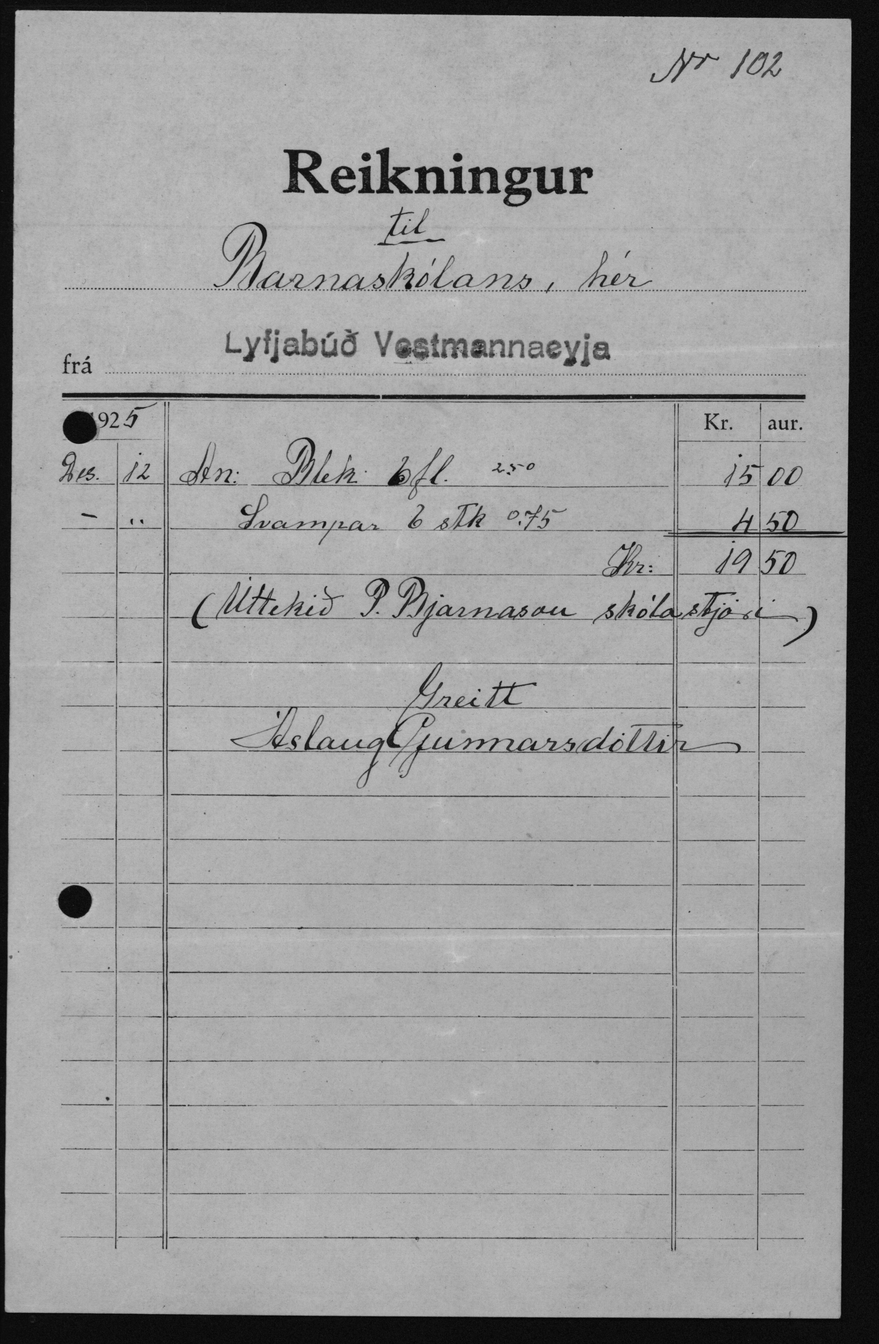 Nr 102
Reikningur
til
Barnaskólans, hér
frá Lyfjabúð Vestmannaeyja
1925 Kr. aur.
Des. 12 An: Blek 6 fl. 2.50 15 00
– " Svampar 6 stk 0.75 4 50
Kr: 19 50
(Úttekið P. Bjarnason skólastjóri)
Greitt
Áslaug Gunnarsdóttir